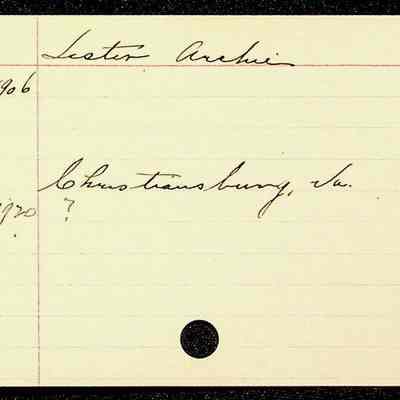 Lester Archie
1906
Christiansburg, Va.
1920 ?